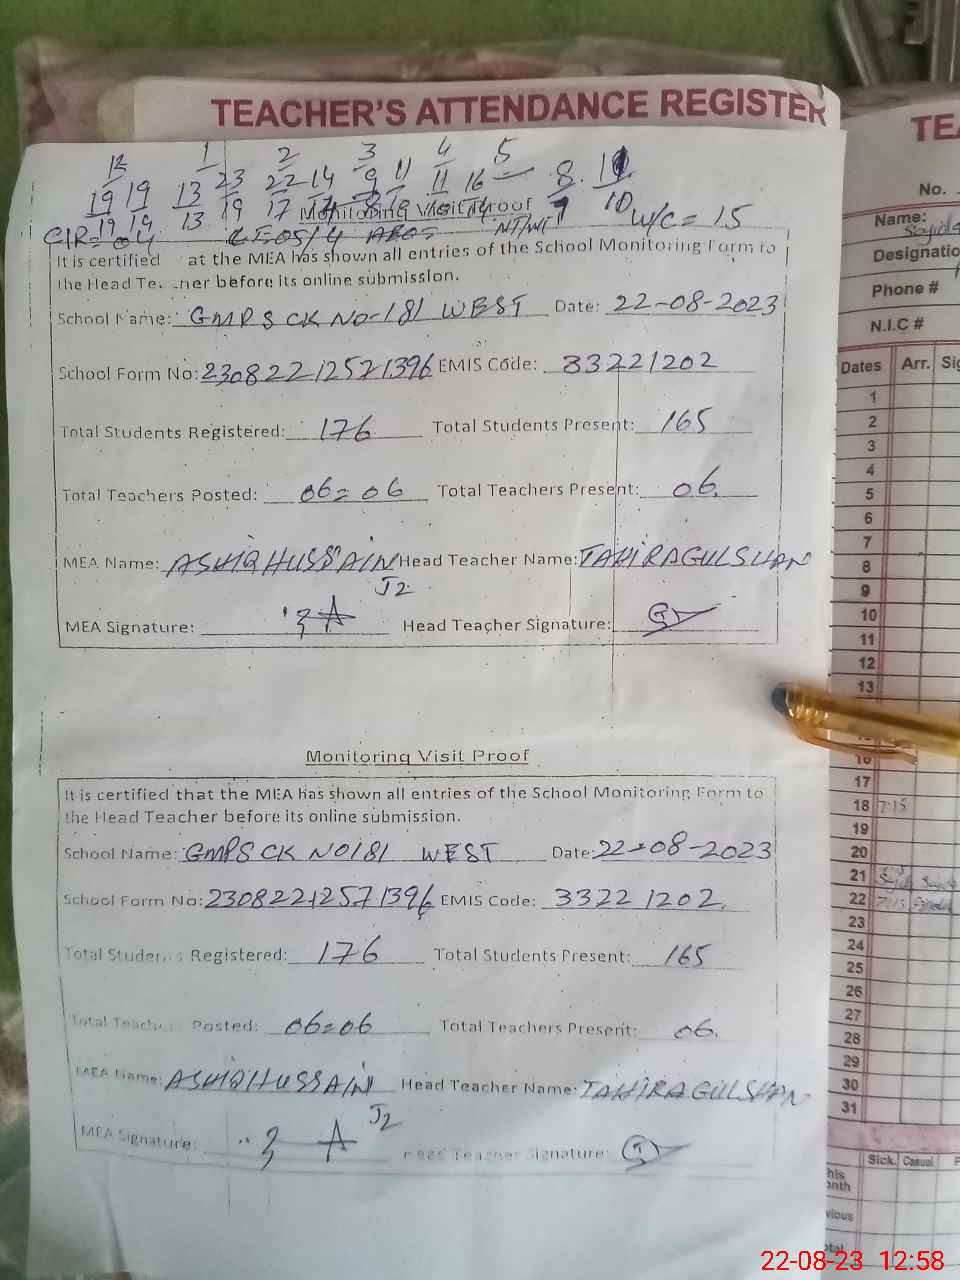 TEACHER'S ATTENDANCE REGISTER
1 2 3 4 5
19 19 13 23 22 14 9 11 11 16 8. 11
19 19 13 19 17 10
Monitoring Visit Proof
W/C = 15
CIR = 04
It is certified at the MEA has shown all entries of the School Monitoring Form to
the Head before its online submission.
School Name: GMPS CK NO-181 WEST Date: 22-08-2023
School Form No: 23082212571396 EMIS Code: 33221202
Total Students Registered: 176 Total Students Present: 165
Total Teachers Posted: 06=06 Total Teachers Present: 06.
MEA Name: ASHIQ HUSSAIN Head Teacher Name: TAHIRA GULSHAN
J2
MEA Signature: Head Teacher Signature:
Monitoring Visit Proof
It is certified that the MEA has shown all entries of the School Monitoring Form to
the Head Teacher before its online submission.
School Name: GMPS CK NO181 WEST Date: 22-08-2023
School Form No: 23082212571396 EMIS Code: 33221202.
Total Students Registered: 176 Total Students Present: 165
Total Posted: 06=06 Total Teachers Present: 06.
MEA Name: ASHIQ HUSSAIN Head Teacher Name: TAHIRA GULSHAN
J2
MEA Signature: Teacher Signature:
TEA
No.
Name:
Designatio
Phone #
N.I.C #
Dates Arr. Sig
1
2
3
4
5
6
7
8
9
10
11
12
13
16
17
18 7:15
19
20
21
22 7:15
23
24
25
26
27
28
29
30
31
Sick. Casual
his
onth
vious
otal
22-08-23 12:58